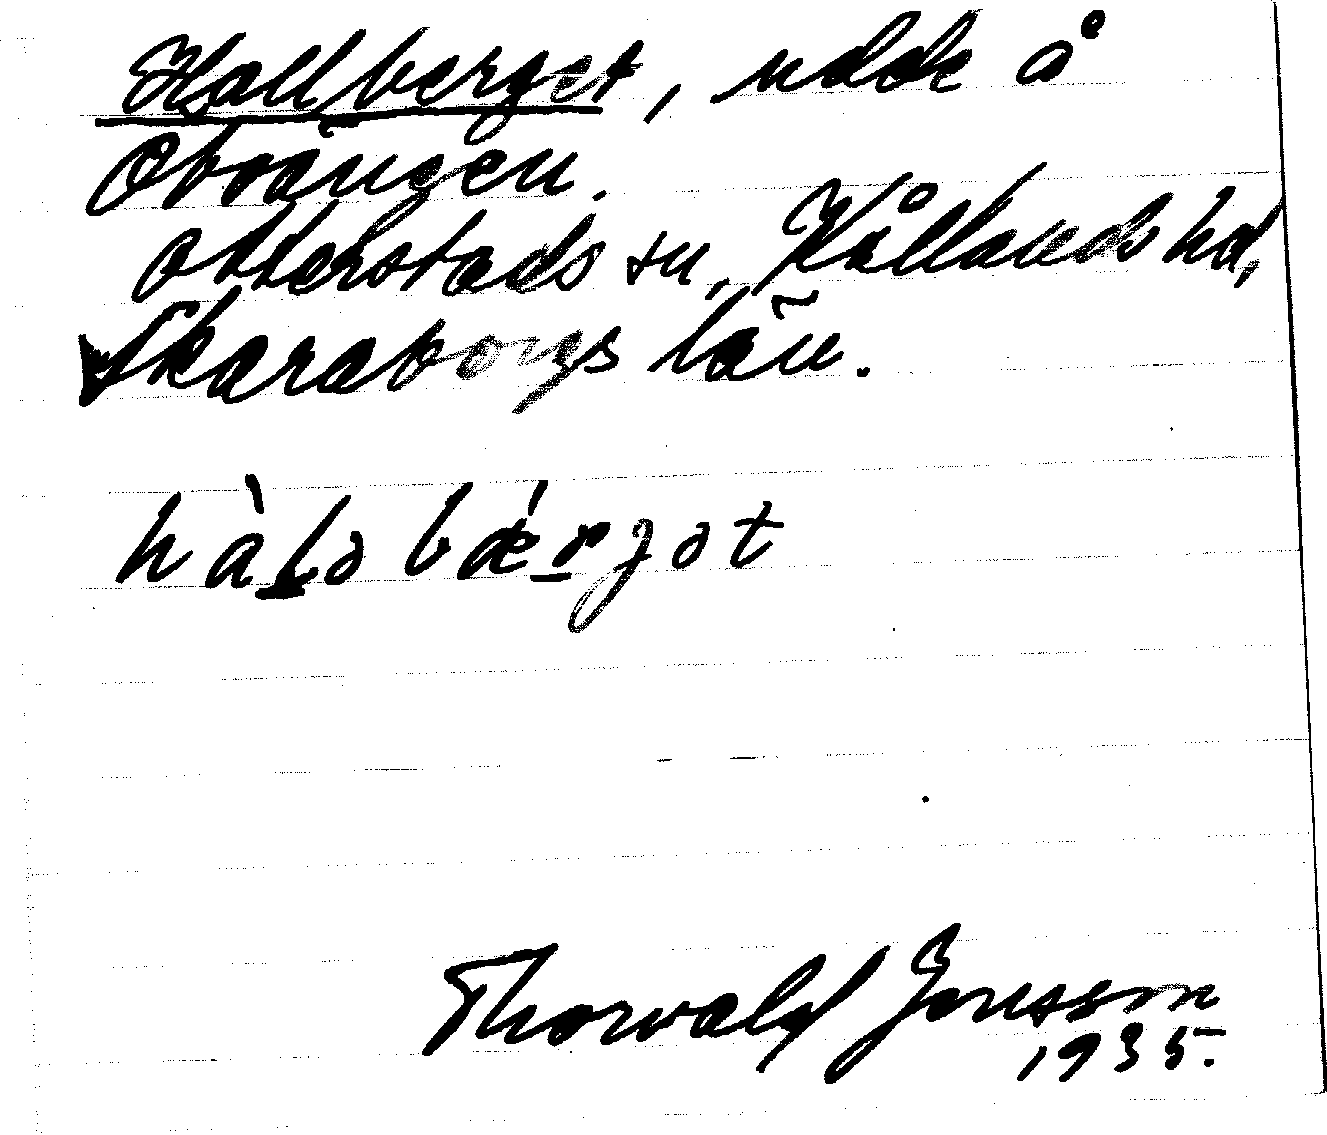 Hallberget, udde å
Obroängen.
Otterstads sn, Kållands hd,
Skaraborgs län.
hàlə bǽrgət
Thorwald Jonsson
1935.